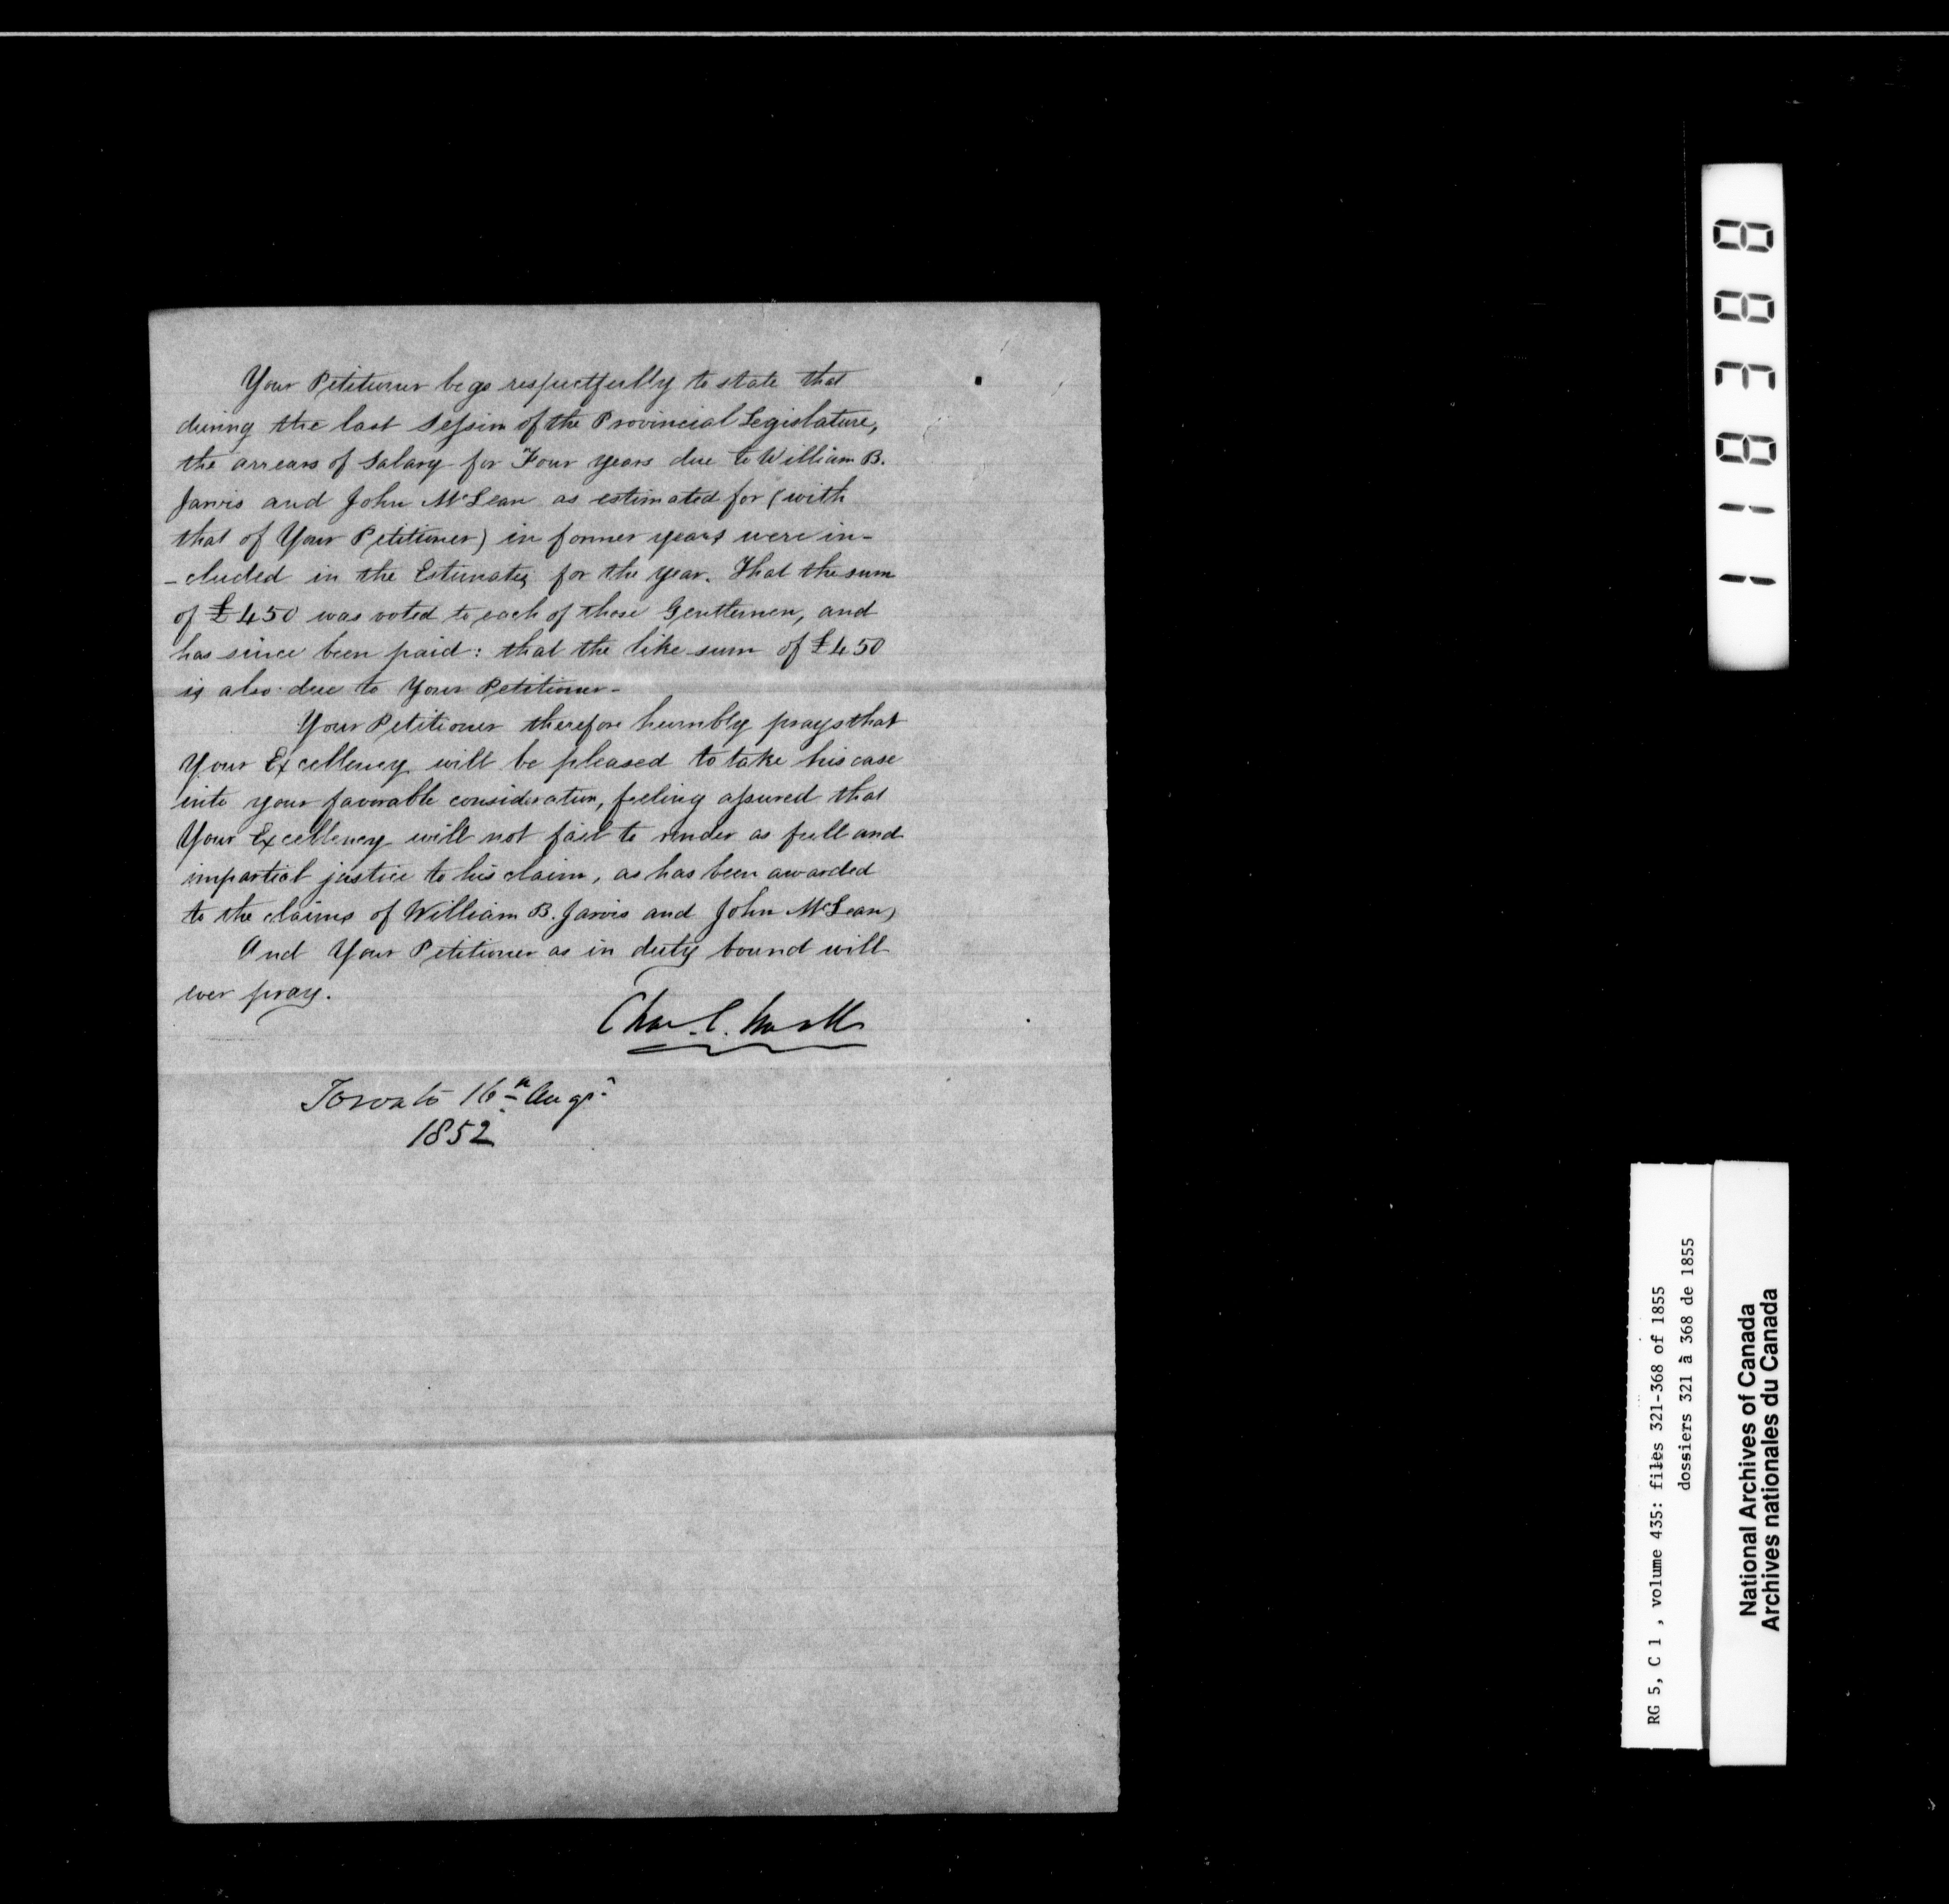 Your Petitioner begs respectfully to state that
during the last Session of the Provincial Legislature,
the arrears of Salary for Four years due to William B.
Jarvis and John McLean as estimated for (with
that of Your Petitioner) in former years were in-
-cluded in the Estimates for the year. That the sum
of £450 was voted to each of those Gentlemen, and
has since been paid: that the like sum of £450
is also due to Your Petitioner-
Your Petitioner therefore humbly prays that
Your Excellency will be pleased to take his case
into your favorable consideration, feeling assured that
Your Excellency will not fail to render as full and
impartial justice to his claim, as has been awarded
to the claims of William B. Jarvis and John McLean,
And Your Petitioner as in duty bound will
ever pray.
Chas. C. Small
Toronto 16th Augt.
1852
118388
RG 5, C 1 , volume 435: files 321-368 of 1855
dossiers 321 à 368 de 1855
National Archives of Canada
Archives nationales du Canada